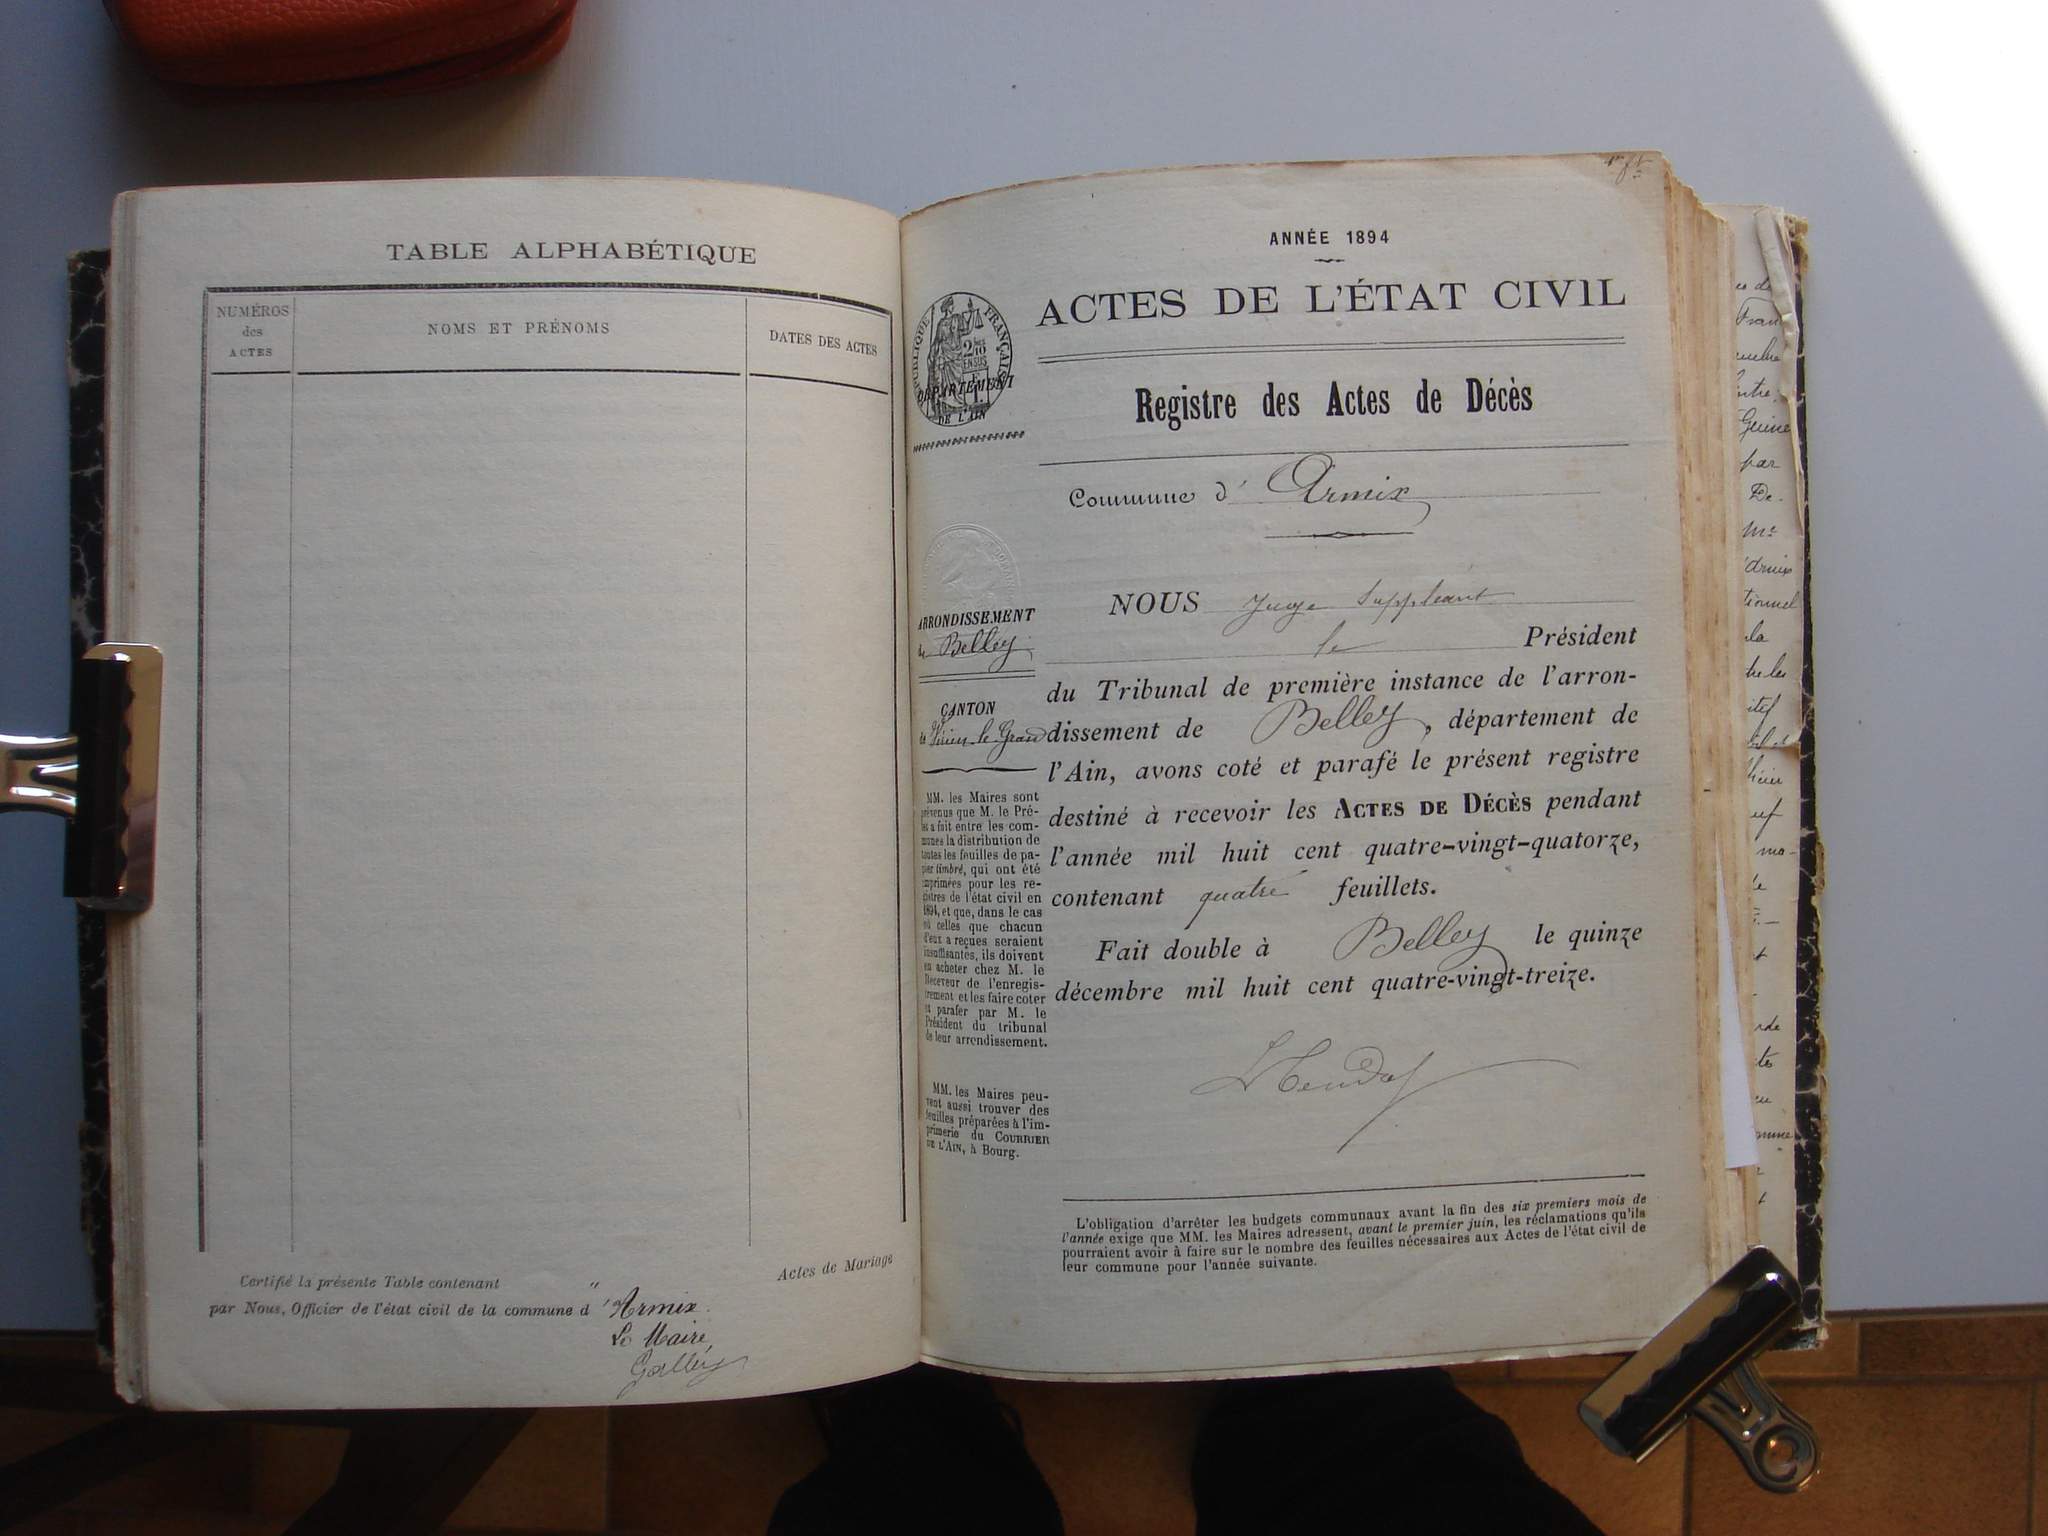 TABLE ALPHABÉTIQUE
NUMÉROS
des
ACTES
NOMS ET PRÉNOMS
DATES DES ACTES
Certifié la présente Table contenant " Actes de Mariage
par Nous, Officier de l'état civil de la commune d'Armix.
Le Maire,
ANNÉE 1894
ACTES DE L'ÉTAT CIVIL
RÉPUBLIQUE FRANÇAISE
2/10
EN SUS
DÉPARTEMENT
DE L'AIN
Registre des Actes de Décès
Commune d' Armix
ARRONDISSEMENT
de Belley
CANTON
de Virieu-le-Grand
MM. les Maires sont
prévenus que M. le Pré-
fet a fait entre les com-
munes la distribution de
toutes les feuilles de pa-
pier timbré, qui ont été
imprimées pour les re-
gistres de l'état civil en
1894, et que, dans le cas
où celles que chacun
d'eux a reçues seraient
insuffisantes, ils doivent
en acheter chez M. le
Receveur de l'enregis-
trement et les faire coter
et parafer par M. le
Président du tribunal
de leur arrondissement.
MM. les Maires peu-
vent aussi trouver des
feuilles préparées à l'im-
primerie du COURRIER
DE L'AIN, à Bourg.
NOUS Juge Suppléant
le Président
du Tribunal de première instance de l'arron-
dissement de Belley, département de
l'Ain, avons coté et parafé le présent registre
destiné à recevoir les ACTES DE DÉCÈS pendant
l'année mil huit cent quatre-vingt-quatorze,
contenant quatre feuillets.
Fait double à Belley le quinze
décembre mil huit cent quatre-vingt-treize.
L'obligation d'arrêter les budgets communaux avant la fin des six premiers mois de
l'année exige que MM. les Maires adressent, avant le premier juin, les réclamations qu'ils
pourraient avoir à faire sur le nombre des feuilles nécessaires aux Actes de l'état civil de
leur commune pour l'année suivante.